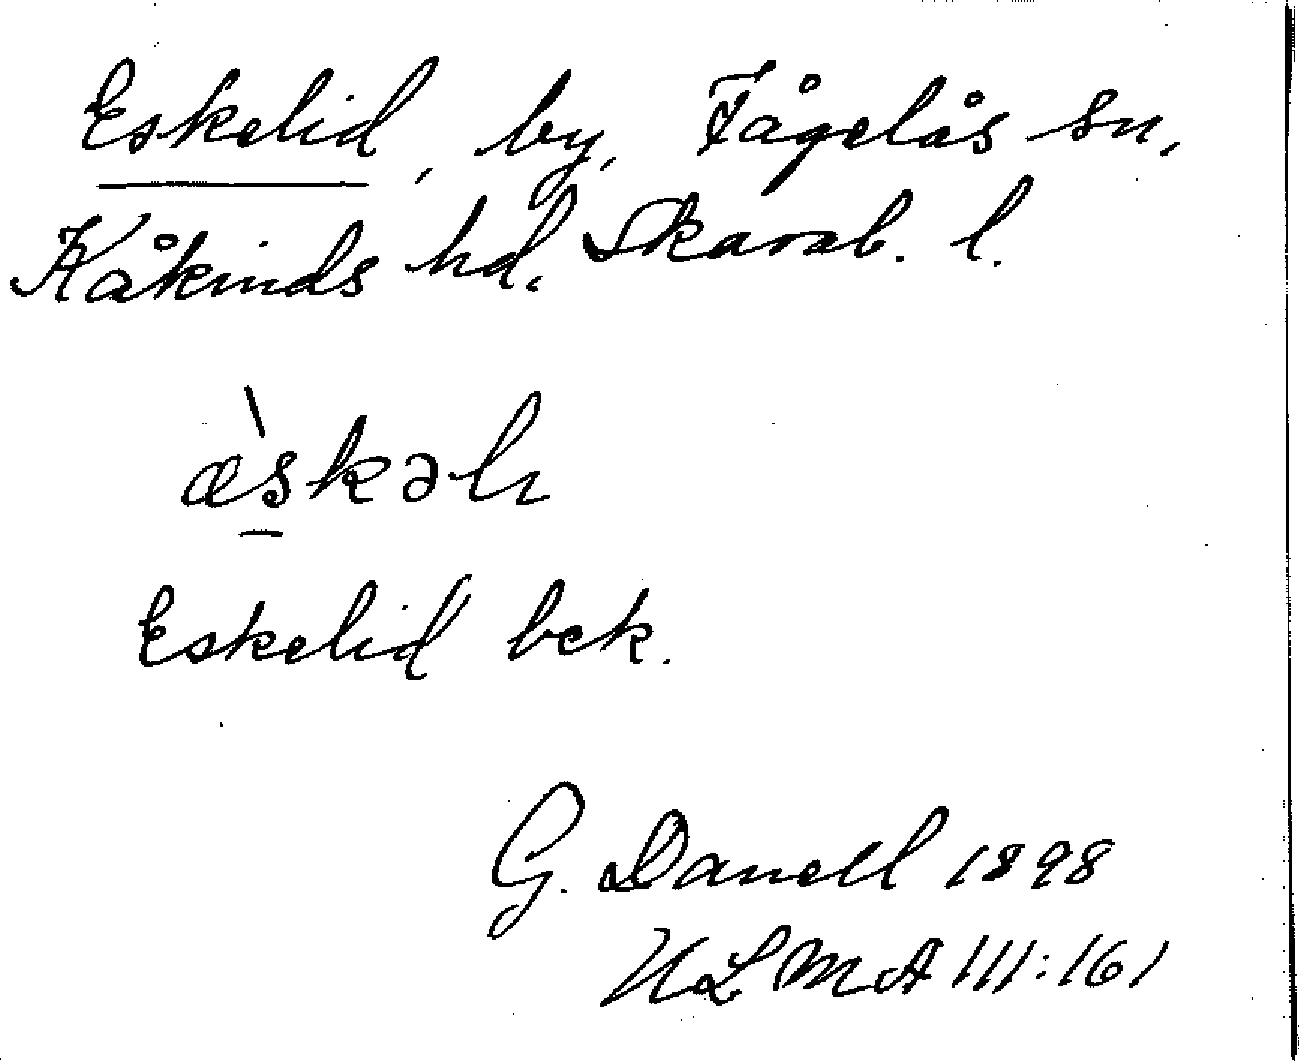 Eskelid, by, Fågelås sn,
Kåkinds hd. Skarab. l.
æ̀skəlı
Eskelid bek.
G. Danell 1898
ULMA 111:161